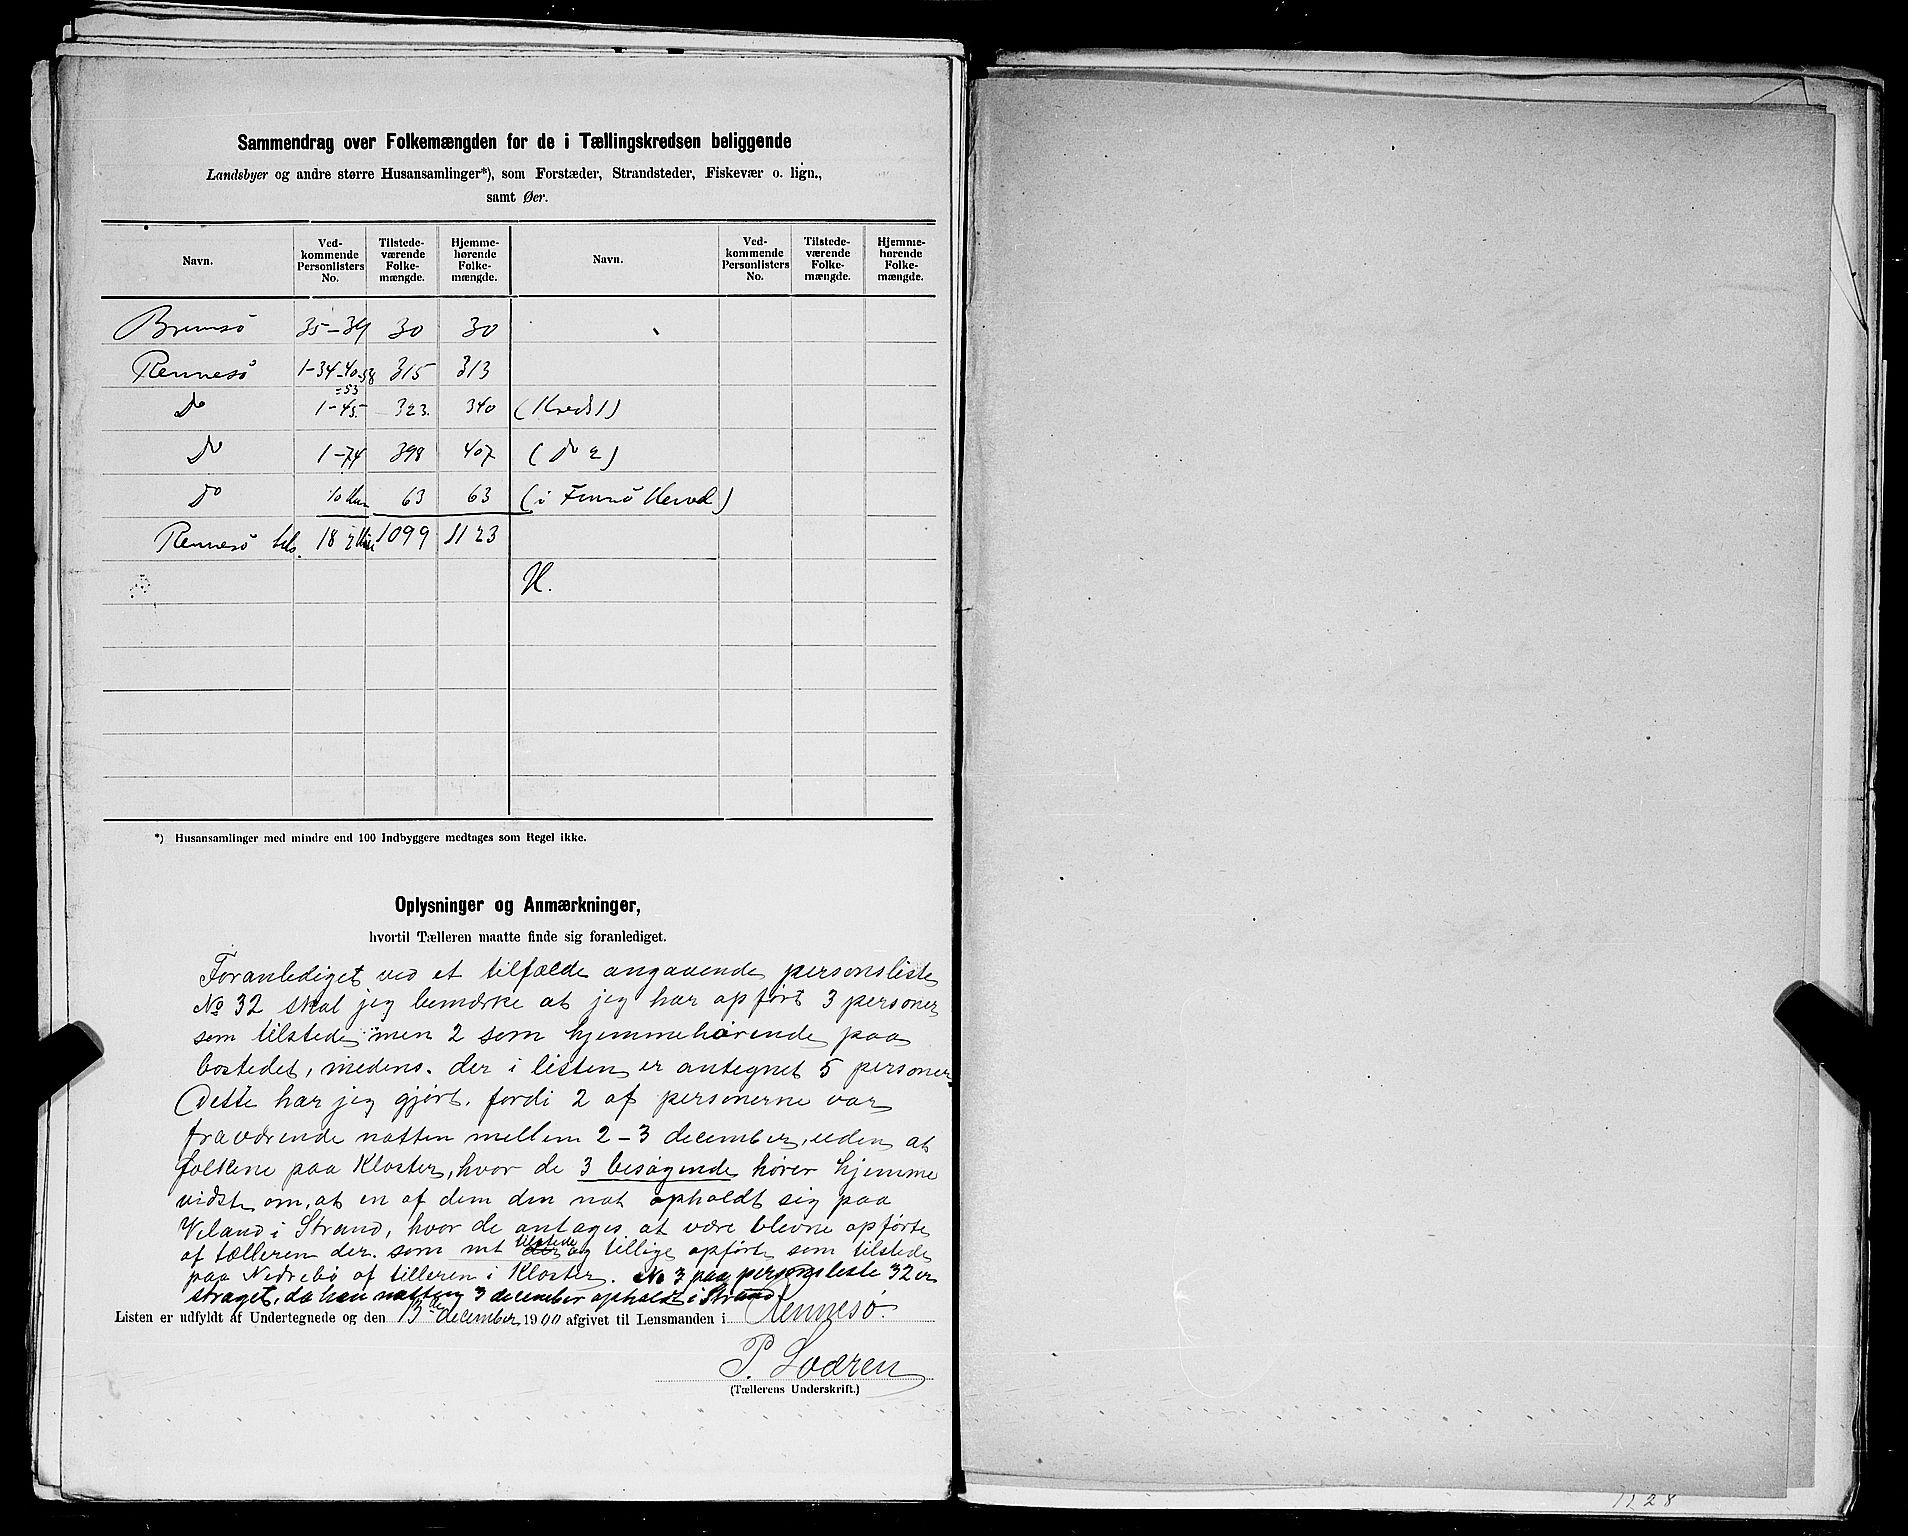 Sammendrag over Folkemængden for de i Tællingskredsen beliggende
Landsbyer og andre større Husansamlinger*), som Forstæder, Strandsteder, Fiskevær o. lign.,
samt Øer.
Navn. Ved-kommende Personlisters No. Tilstede-værende Folke-mængde. Hjemme-hørende Folke-mængde. Navn. Ved-kommende Personlisters No. Tilstede-værende Folke-mængde. Hjemme-hørende Folke-mængde.
Brimsö 35-39 30 30
Rennesö 1-34-40-58 315 313
=53
Do 1-45 323. 340 (Kreds 1)
Do 1-74 398 407 (Do 2)
Do 10 63 63 (i Finnö Herred)
Rennesö tils. 182 1099 1123
H.
*) Husansamlinger med mindre end 100 Indbyggere medtages som Regel ikke.
Oplysninger og Anmærkninger,
hvortil Tælleren maatte finde sig foranlediget.
Foranlediget ved et tilfælde angaaende personsliste
No 32 skal jeg bemærke at jeg har opført 3 personer
som tilstede men 2 som hjemmehörende paa
bostedet, medens der i listen er antegnet 5 personer
Dette har jeg gjort, fordi 2 af personerne var
fraværende natten mellem 2-3 december, uden at
folkene paa Kloster, hvor de 3 besøgende hører hjemme
vidste om, at en af dem den nat opholdt sig paa
Veland i Strand, hvor de antages at være blevne opførte
af tælleren der. som mt tilstede og tillige opført som tilstede
paa Nedrebö af tælleren i Kloster. No 3 paa personsliste 32 er
strøget, da han natten 3 december opholdt i Strand.
Listen er udfyldt af Undertegnede og den 13de december 1900 afgivet til Lensmanden i Rennesö.
P. Sværen
(Tællerens Underskrift.)
1128